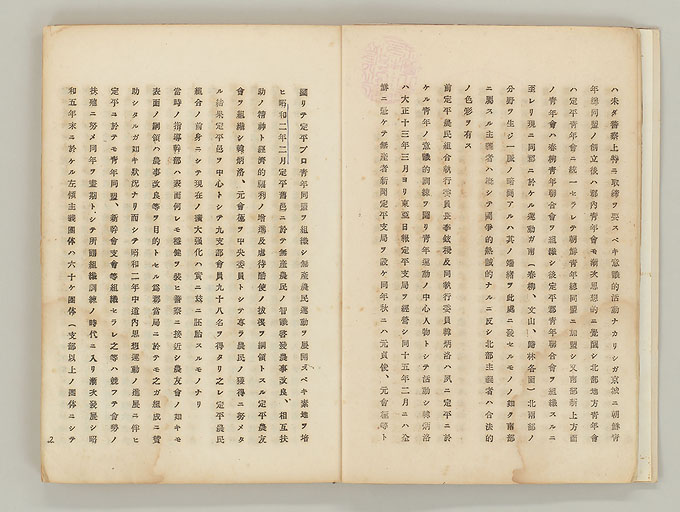 ハ未ダ警察上特ニ取締ヲ要スベキ意識的活動ナカリシガ京城ニ朝鮮青
年總同盟ノ創立後ハ郡內青年會モ漸次思想的ニ覺醒シ北部地方青年會
ハ定平青年會ニ統一セラレテ朝鮮青年總同盟ニ加盟シ又南部新上方面
ノ青年會ハ春柳青年聯合會ヲ組織シ後定平郡青年聯合會ヲ組織スルニ
至レリ現ニ同郡ニ於ケル運動ガ南(春柳、文山、歸林各面)北南部ノ
分野ヲ生ジ一脈ノ暗鬪アルハ其ノ端緒ヲ此處ニ發セルモノノ如ク南部
ニ屬スル主義者ハ概シテ鬪爭的熱誠的ナルニ反シ北部主義者ハ合法的
ノ色彩ヲ有ス
前定平農民組合執行委員長李 及同執行委員韓炳洛ハ夙ニ定平ニ於
ケル青年ノ意識的訓練ヲ圖リ青年運動ノ中心人物トシテ活動シ韓炳洛
ハ大正十三年三月ヨリ東亞日報定平支局ヲ經營シ同十五年二月ニハ全
鮮ニ魁ケテ無產者新聞定平支局ヲ設ケ同年秋ニハ元貞俊、元會極等ト
圖リテ定平プロ青年同盟ヲ組織シ無產農民運動ヲ展開スベキ素地ヲ培
ヒ昭和二年二月定平舊邑ニ於テ無產農民ノ智識啓發農事改良、相互扶
助ノ精神ト經濟的福利ノ增進及虐待酷使ノ拔復ヲ綱領トスル定平農友
會ヲ組織シ韓炳洛、元會極ヲ中央委員トシテ專ラ農民ノ獲得ニ努メタ
ル結果定平邑ヲ中心トシテ九支部會員九十八名ヲ得タリ之レ定平農民
組合ノ前身ニシテ現在ノ擴大强化ハ實ニ玆ニ胚胎スルモノナリ
當時ノ指導幹部ハ表面何レモ穩健ヲ裝ヒ警察ニ接近シ農友會ノ如キモ
表面ノ綱領ハ農事改良等ヲ目的トセル爲郡當局ニ於テモ之ガ組成ニ贊
助シタルガ如キ狀況ナリ而シテ昭和二年中道內思想運動ノ進展ニ伴ヒ
定平ニ於テモ青年同盟、新幹會支會等組織セラレ之等ハ擧ツテ會勢ノ
扶殖ニ努メ同年ヲ一期トシテ所謂組織訓練ノ時代ニ入リ漸次發展シ昭
和五年末ニ於ケル左傾主義團体ハ六十ケ團体(支部以上ノ團体ニシテ
2